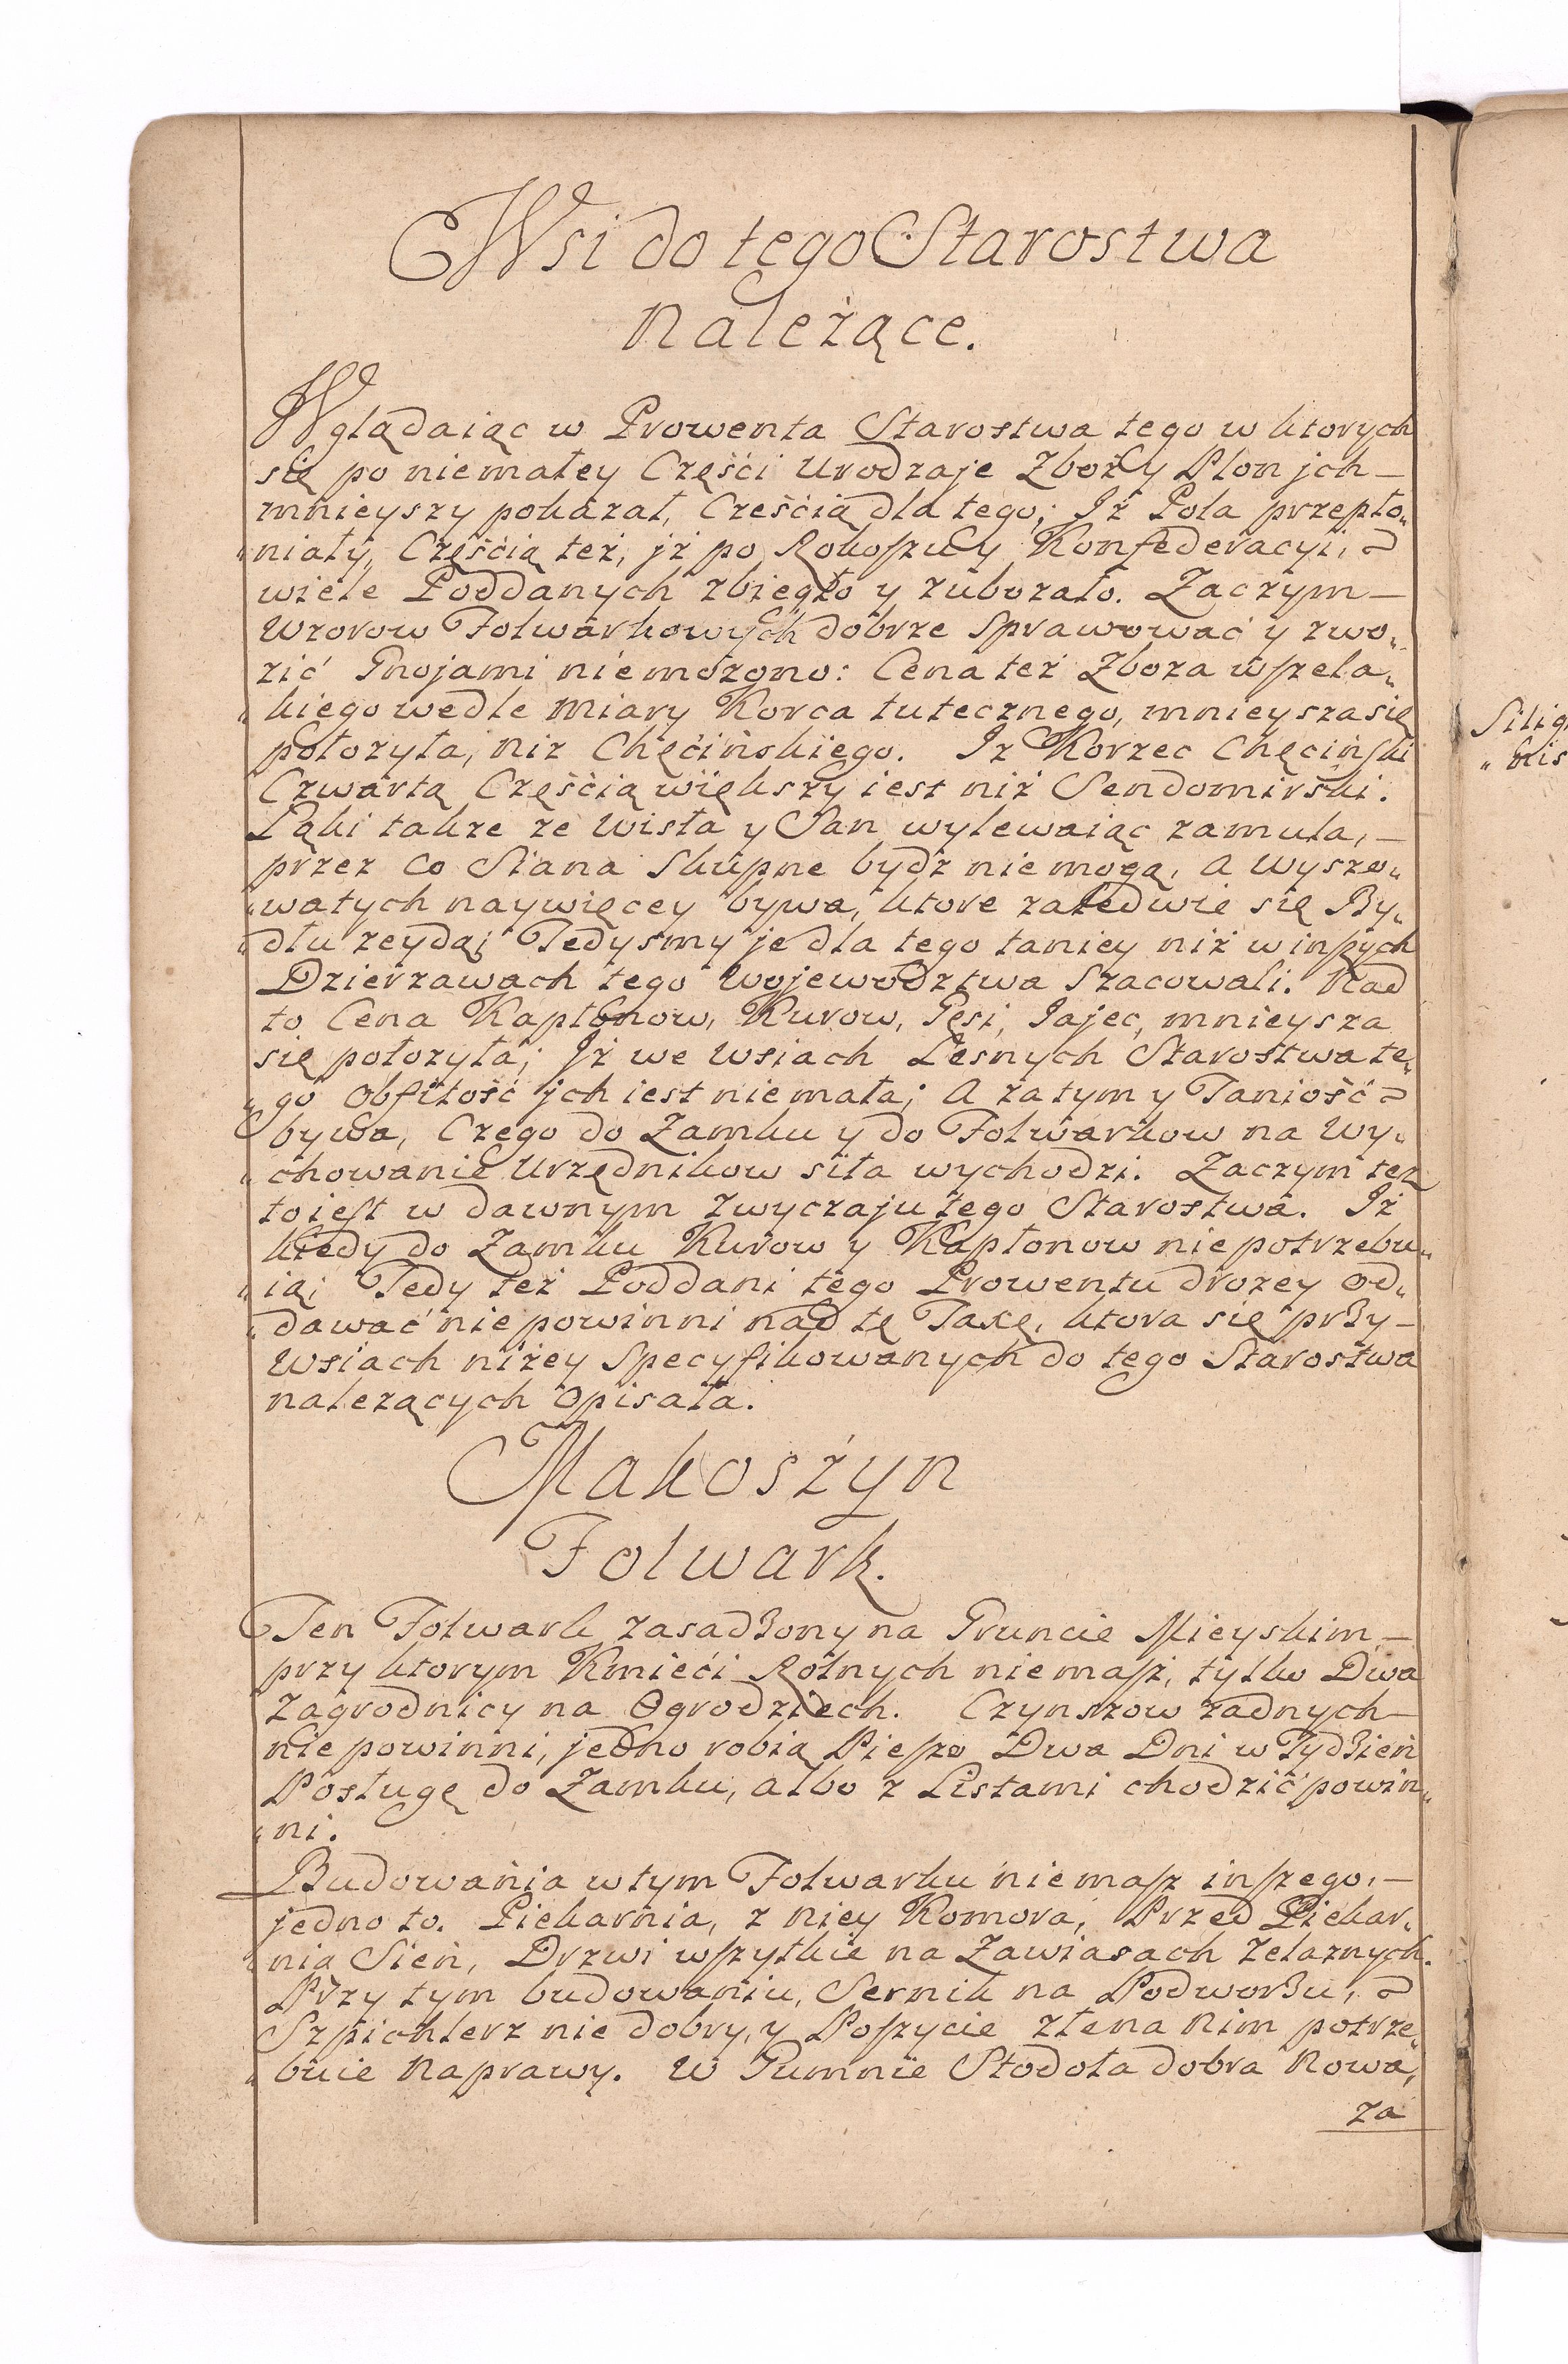 Wsi do tego Starostwa
należące.
Wglądaiąc w Prowenta Starostwa tego w ktorych
się po niemałey Częśći Urodzaje Zboż y Plon jch
mnieyszy pokazał, Cześćią dla tego; Jż Pola przepło„
„niały, Częśćią też, jż po Rokoszu y Konfederacyi,
wiele Poddanych zbiegło y zubożało. Zaczym
Wzorow Folwarkowych dobrze Sprawować y zwo„
zić Gnojami niemożono: Cena też Zboża wszela„
„kiego wedle Miary Korca tutecznego, mnieysza się
położyła, niż Chęćińskiego. Iż Korzec Chęciński
Czwartą Częśćią większy iest niż Sendomirski.
Łąki także że Wisła y San wylewaiąc zamula,
przez co Siana Skupne bydź niemogą, A Wyszo„
„watych naywięcey bywa, ktore zaledwie się By„
„dłu zeydą; Tedysmy je dla tego taniey niż w inszych
Dzierżawach tego Wojewodztwa Szacowali. Nad
to Cena Kapłonow, Kurow, Gęsi, Jajec, mnieysza
się położyła; Jż we Wsiach Leśnych Starostwa te„
„go Obfitość jch iest niemała; A zatym y Taniość
bywa, Czego do Zamku y do Folwarkow na Wy„
„chowanie Urzędnikow siła wychodzi. Zaczym też
to iest w dawnym Zwyczaju tego Starostwa. Iż
kiedy do Zamku Kurow y Kapłonow niepotrzebu„
„ią; Tedy też Poddani tego Prowentu drożey od„
„dawać niepowinni nad tę Taxę, ktora się przy
Wsiach niżey Specyfikowanych do tego Starostwa
należących Opisała.
Makoszyn
Folwark.
Ten Folwark zasadzony na Gruncie Mieyskim
przy ktorym Kmieći Rolnych niemasz, tylko Dwa
Zagrodnicy na Ogrodziech. Czynszow żadnych
nie powinni, jedno robią Pieszo Dwa Dni w Tydzień
Posługę do Zamku, albo z Listami chodzić powin„
„ni.
Budowania w tym Folwarku niemasz inszego,
jedno to. Piekarnia, z niey Komora, Przed Piekar„
„nią Sień, Drzwi wszytkie na Zawiasach Żelaznych.
Przy tym budowaniu, Sernik na Podworzu,
Szpichlerz nie dobry, y Poszycie złe na Nim potrze„
„buie Naprawy. W Gumnie Stodoła dobra Nowa,
za